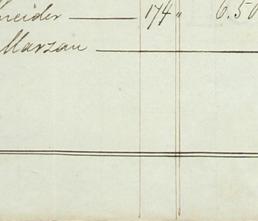 neider 174 " 6.50
Marzau